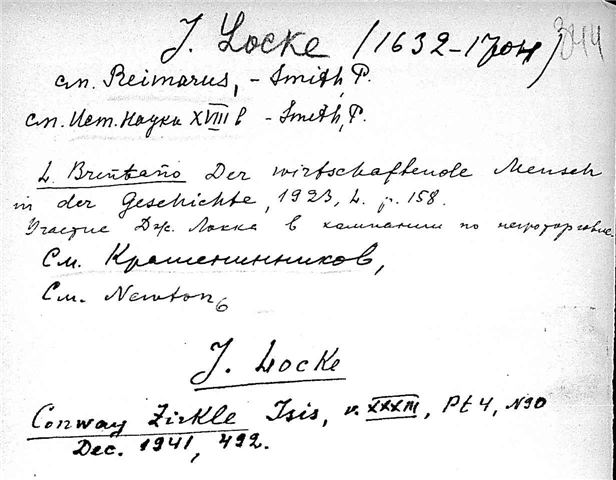 J. Locke (1632-1704) 344
см. Reimarus, - Smith, P.
см. Ист. науки XVIII в - Smith, P.
L. Brentano Der wirtschaftende Mensch
in der Geschichte, 1923, L. p. 158.
Участие Дж. Локка в кампании по негроторговле.
См. Крашенинников,
См. Newton
J. Locke
Conway Zirkle Isis, v. XXXIII, Pt 4, N90
Dec. 1941, 492.